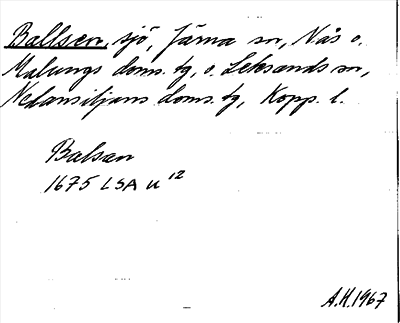 Ballsen, sjö, Järna sn, Nås o.
Malungs doms. tg, o. Leksands sn,
Nedansiljans doms. tg, Kopp. l.
Balsan
1675 LSA U 12
A.H. 1967